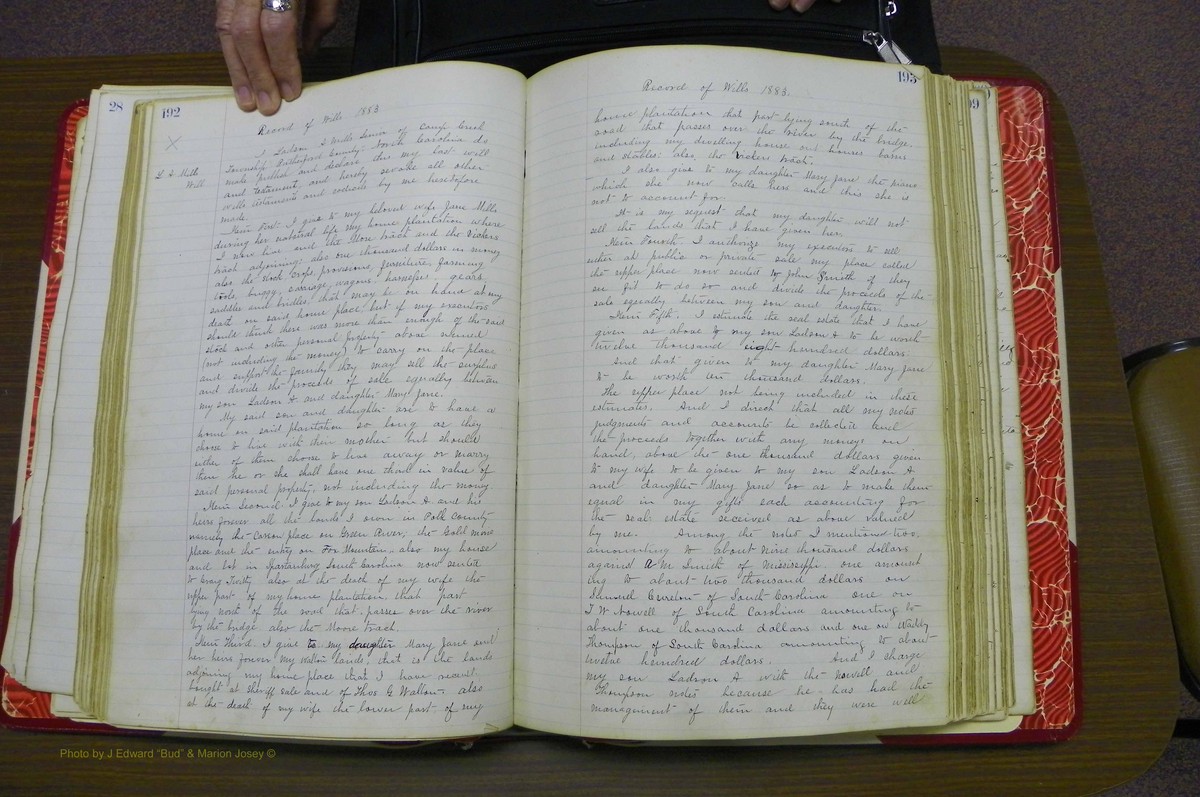 28
192
Record of Wills 1883
L A Mills
Will
I Ladson A Mills Senior of Camp Creek
Township Rutherford County North Carolina do
make publish and declare this my last will
and testament and hereby revoke all other
wills testaments and codicils by me heretofore
made.
Item First. I give to my beloved wife Jane Mills
during her natural life my home plantation where
I now live and the Moore tract and the Vickers
tract adjoining also one thousand dollars in money
also the stock crops, provisions, furniture, farming
tools, buggy, carriage, wagons, harness, gears,
saddles and bridles, that may be on hand at my
death on said home place, but if my executors
should think there was more than enough of the said
stock and other personal property above named
(not including the money) to carry on the place
and support the family they may sell the surplus
and divide the proceeds of sale equally between
my son Ladson A and daughter Mary Jane.
My said son and daughter are to have a
home on said plantation so long as they
choose to live with their mother but should
either of them choose to live away or marry
then he or she shall have one third in value of
said personal property, not including the money.
Item Second. I give to my son Ladson A and his
heirs forever all the lands I own in Polk County
namely the Carson place on Green River, the Gold mine
place and the entry on Fox Mountain, also my house
and lot in Spartanburg South Carolina now rented
to Craig Twitty also at the death of my wife the
upper part of my home plantation that part
lying north of the road that passes over the river
by the bridge also the Moore tract.
Item Third. I give to my daughter Mary Jane and
her heirs forever my Walton lands, that is the lands
adjoining my home place that I have
bought at sheriff sale and of Thos G Walton. also
at the death of my wife the lower part of my
195
Record of Wills 1883.
home plantation that part lying south of the
road that passes over the river by the bridge.
including my dwelling house out houses barns
and stables: also, the Vickers tract.
I also give to my daughter Mary Jane the piano
which she now calls hers and this she is
not to account for
It is my request that my daughter will not
sell the lands that I have given her.
Item Fourth. I authorize my executors to sell
either at public or private sale my place called
the upper place now rented to John Smith if they
see fit to do so and divide the proceeds of the
sale equally between my son and daughter.
Item Fifth. I estimate the real estate that I have
given as above to my son Ladson A to be worth
twelve thousand eight hundred dollars.
and that given to my daughter Mary Jane
to be worth ten thousand dollars.
The upper place not being included in these
estimates. And I direct that all my notes
judgments and accounts be collected and
the proceeds together with any money on
hand, above the one thousand dollars given
to my wife to be given to my son Ladson A
and daughter Mary Jane so as to make them
equal in my gifts each accounting for
the real estate received as above valued
by me. Among the notes I mentioned two,
amounting to about nine thousand dollars
against M Smith of Mississippi. one amount
ing to about two thousand dollars on
Samuel Cureton of South Carolina one on
T W Nowell of South Carolina amounting to
about one thousand dollars and one on Waddy
Thompson of South Carolina amounting to about
twelve hundred dollars. And I charge
my son Ladson A with the Nowell and
Thompson notes because he has had the
management of them and they were well
Photo by J Edward "Bud" & Marion Josey ©